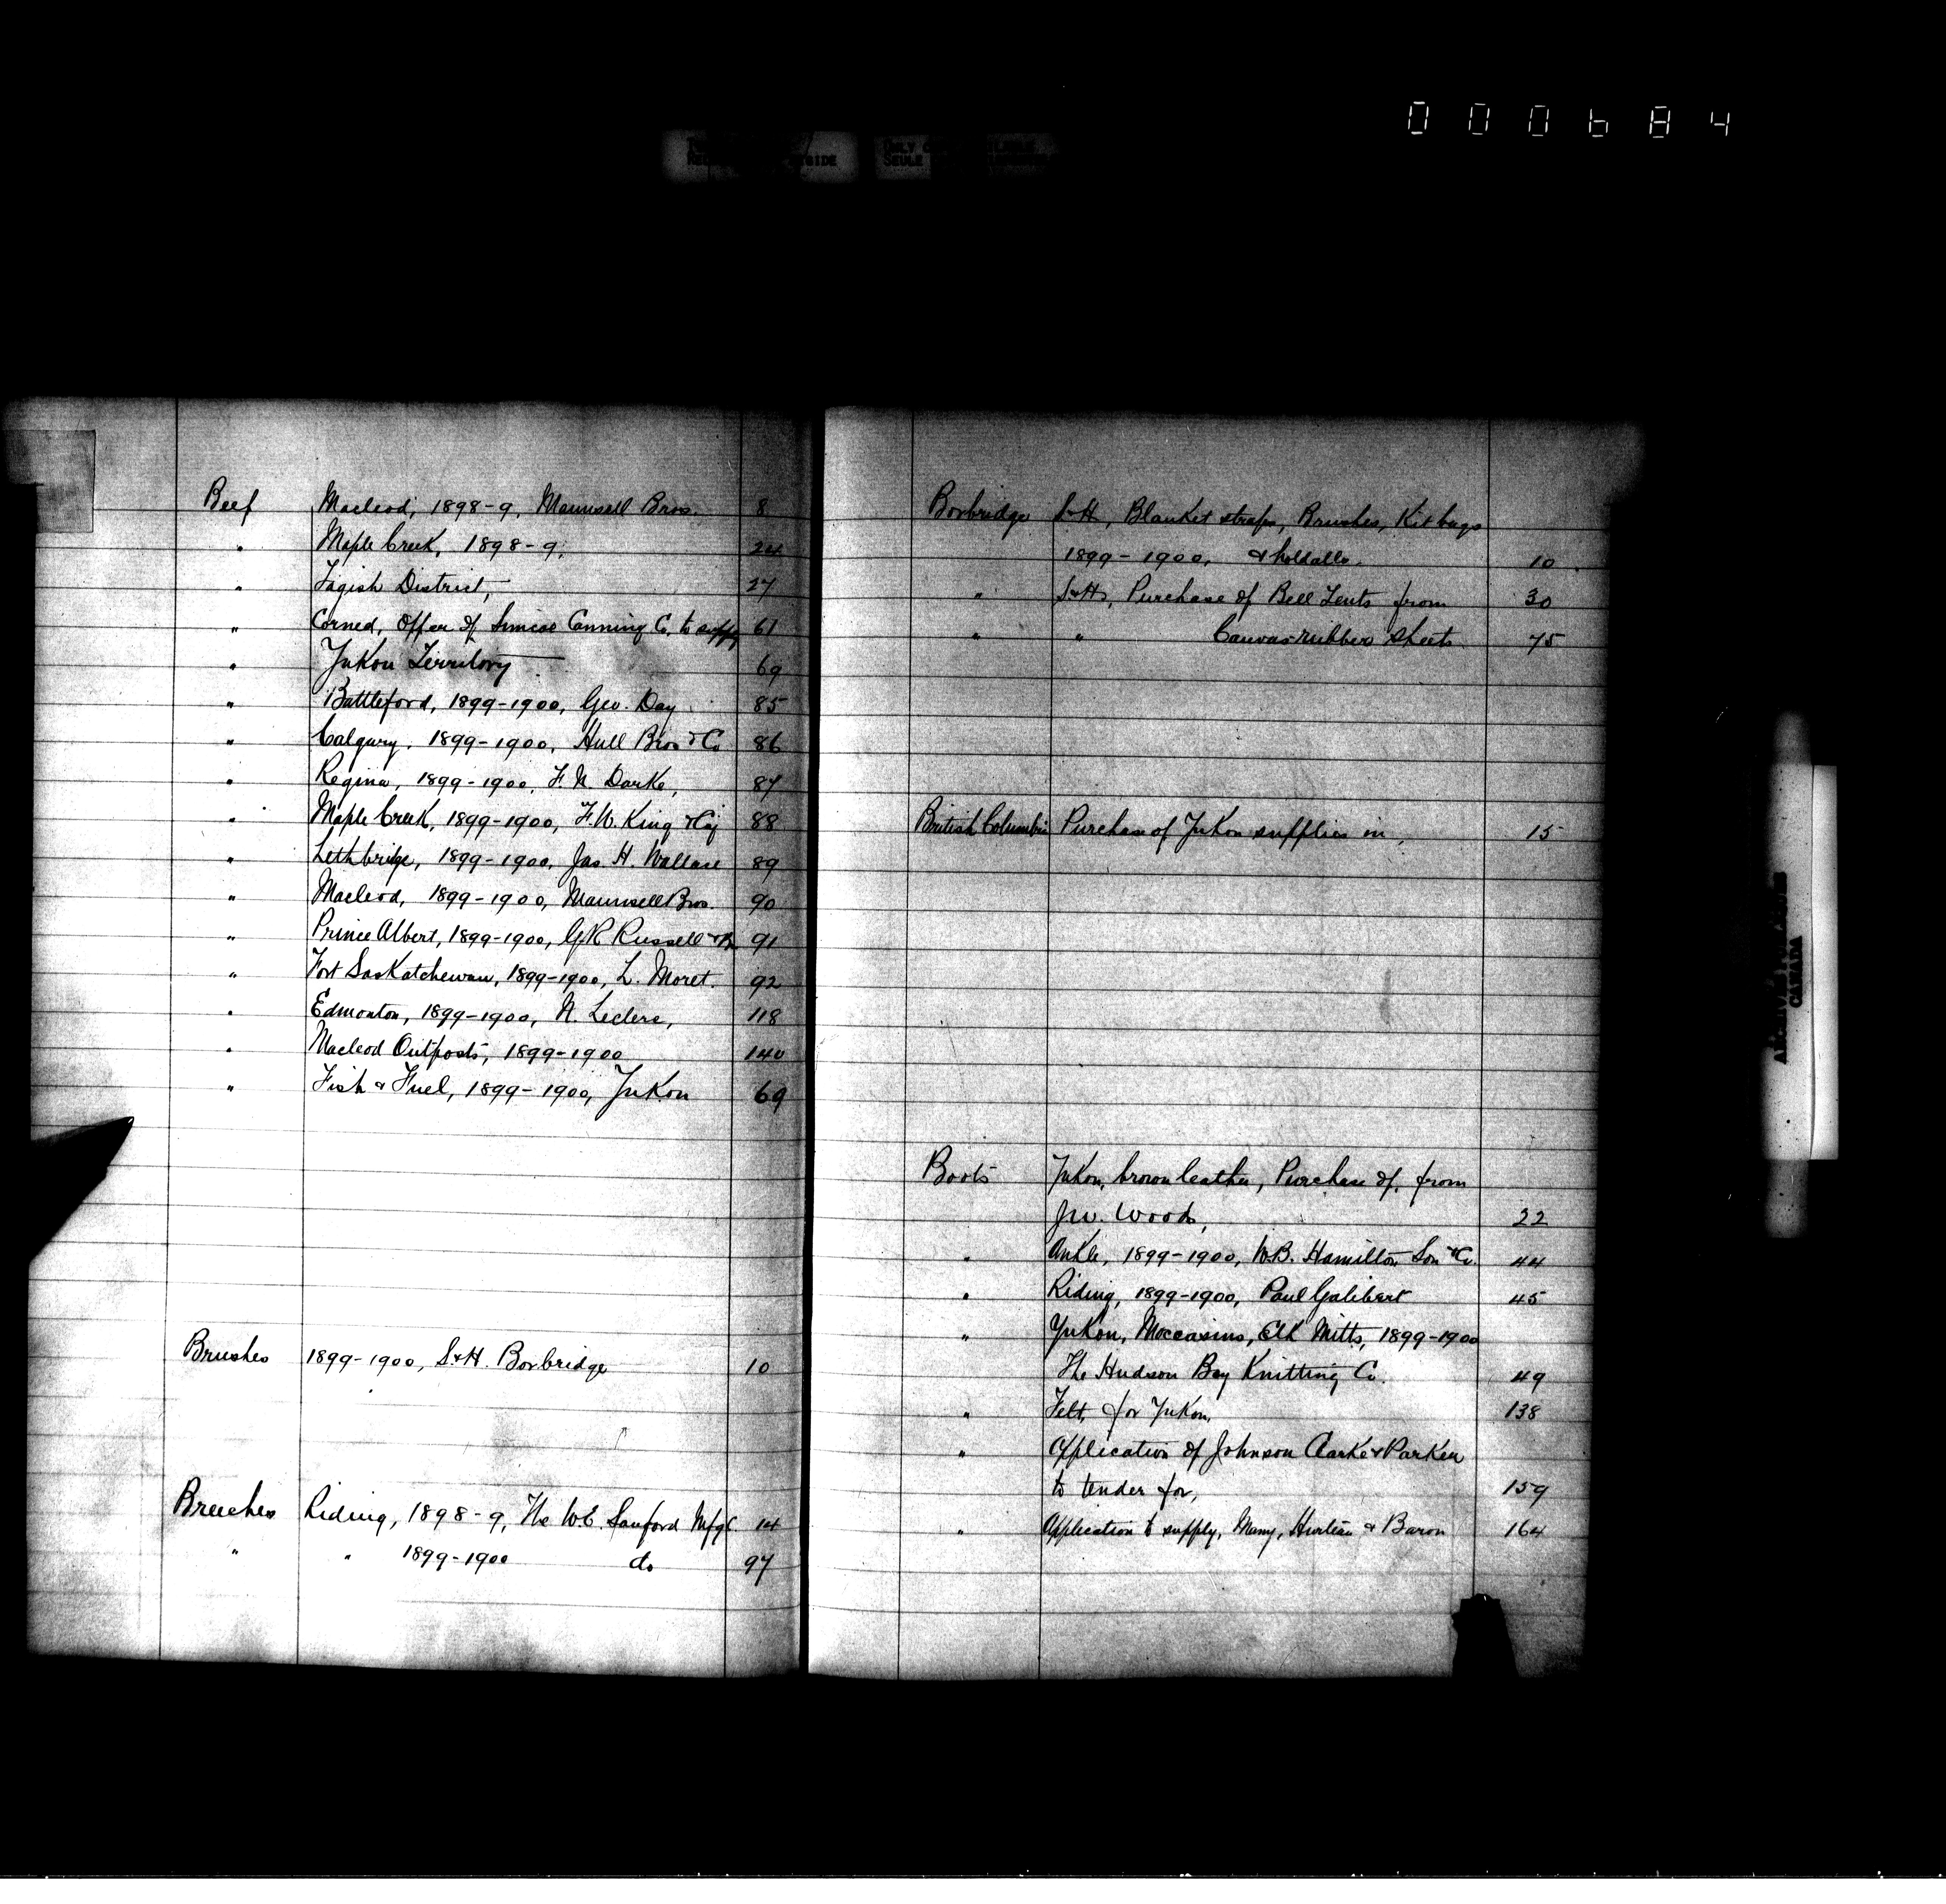 000684
Beef Macleod, 1898-9, Maunsell Bros. 8
" Maple Creek, 1898-9, 24
" Tagish District, 27
" Corned, Offer of Simcoe Canning Co. to supply 61
" Yukon Territory 69
" Battleford, 1899-1900, Geo. Day 85
" Calgary, 1899-1900, Hull Bros & Co 86
" Regina, 1899-1900, F. N. Darke, 87
" Maple Creek, 1899-1900, F. W. King 88
" Lethbridge, 1899-1900, Jas H. Wallace 89
" Macleod, 1899-1900, Maunsell Bros. 90
" Prince Albert, 1899-1900, G R Russell 91
" Fort Saskatchewan, 1899-1900, L. Moret. 92
" Edmonton, 1899-1900, N. Leclerc, 118
" Macleod Outposts, 1899-1900 140
" Fish & Fuel, 1899-1900, Yukon 69
Brushes 1899-1900, S & H. Borbridge 10
Breeches Riding, 1898-9, The W.E. Sanford Mfg C 14
" " 1899-1900 do 97
Borbridge S & H, Blanket straps, Brushes, Kit bags
1899-1900, & holdalls. 10
" S & H, Purchase of Bell Tents from 30
" " Canvas rubber sheets 75
British Columbia Purchase of Yukon supplies in, 15
Boots Yukon, brown leather, Purchase of, from
Jno. Woods, 22
" Ankle, 1899-1900, W.B. Hamilton Son & Co. 44
" Riding, 1899-1900, Paul Galibert 45
" Yukon, Moccasins, Elk Mitts, 1899-1900
The Hudson Bay Knitting Co. 49
" Felt, for Yukon, 138
" Application of Johnson Clarke & Parker
to tender for, 159
" Application to supply, Many, Hurteau & Baron 164